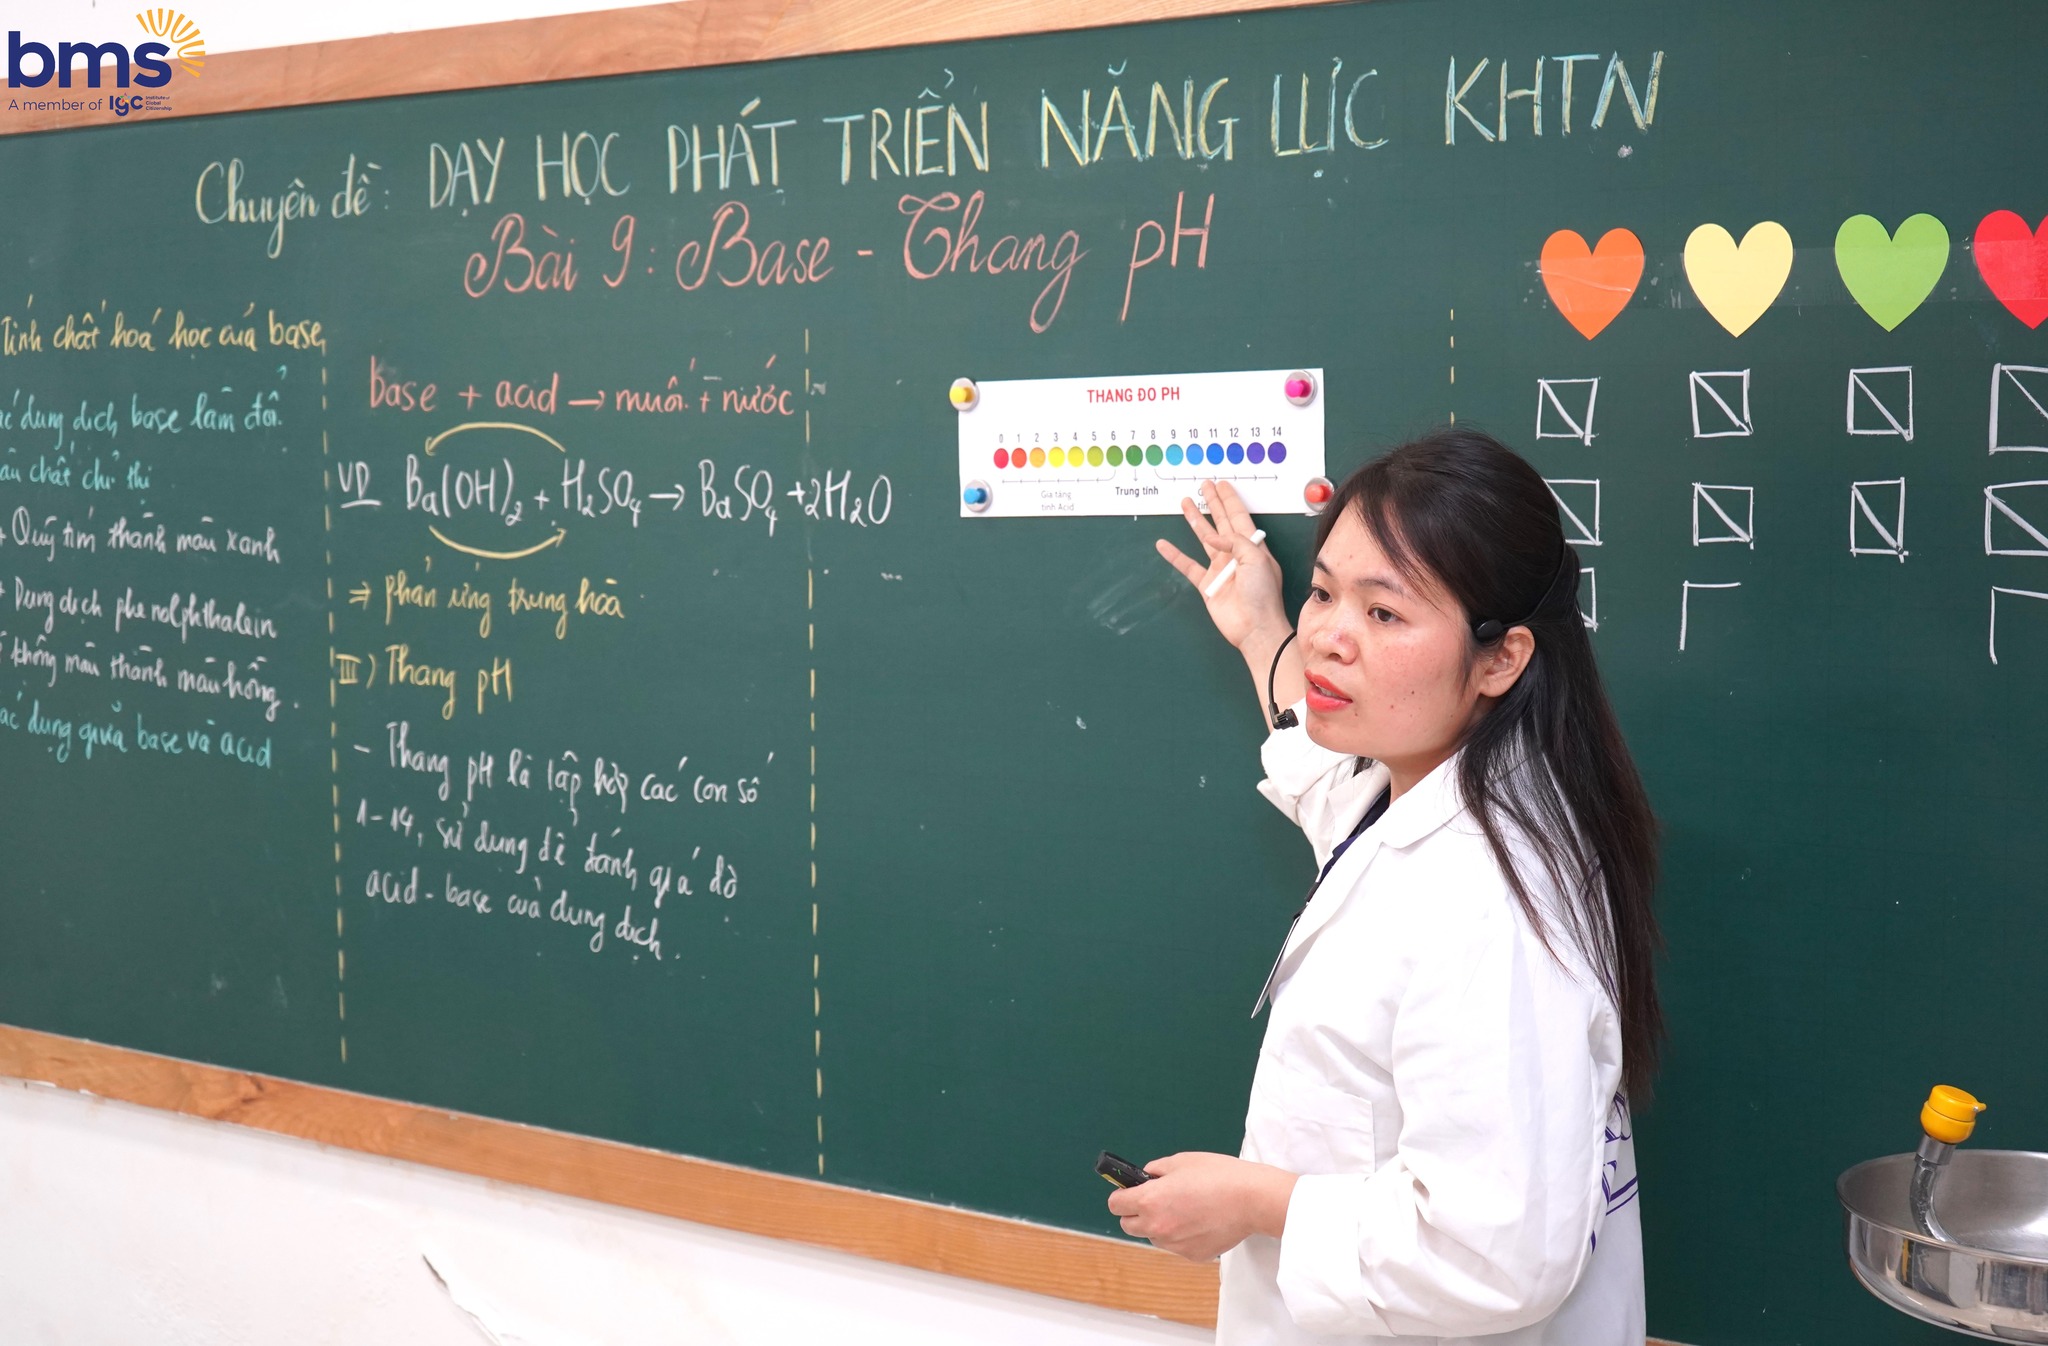 bms
A member of IGC Institute of Global Citizenship
Chuyên đề: DẠY HỌC PHÁT TRIỂN NĂNG LỰC KHTN
Bài 9: Base - Thang pH
Tính chất hoá học của base
dung dịch base làm đổi
chất chỉ thị
+ Quỳ tím thành màu xanh
+ Dung dịch phenolphthalein
không màu thành màu hồng.
dụng giữa base và acid
base + acid → muối + nước
VD Ba(OH)₂ + H₂SO₄ → BaSO₄ + 2H₂O
⇒ phản ứng trung hòa
III) Thang pH
- Thang pH là tập hợp các con số
1-14, sử dụng để đánh giá độ
acid - base của dung dịch.
THANG ĐO PH
0 1 2 3 4 5 6 7 8 9 10 11 12 13 14
Gia tăng
tính Acid
Trung tính